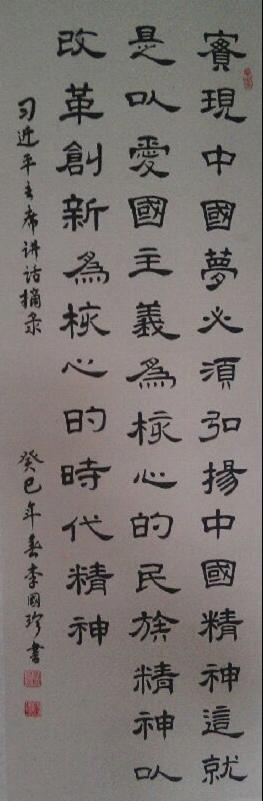 實現中國夢必須弘揚中國精神這就
是以愛國主義為核心的民族精神以
改革創新為核心的時代精神
习近平主席讲话摘录
癸巳年春李國珍書